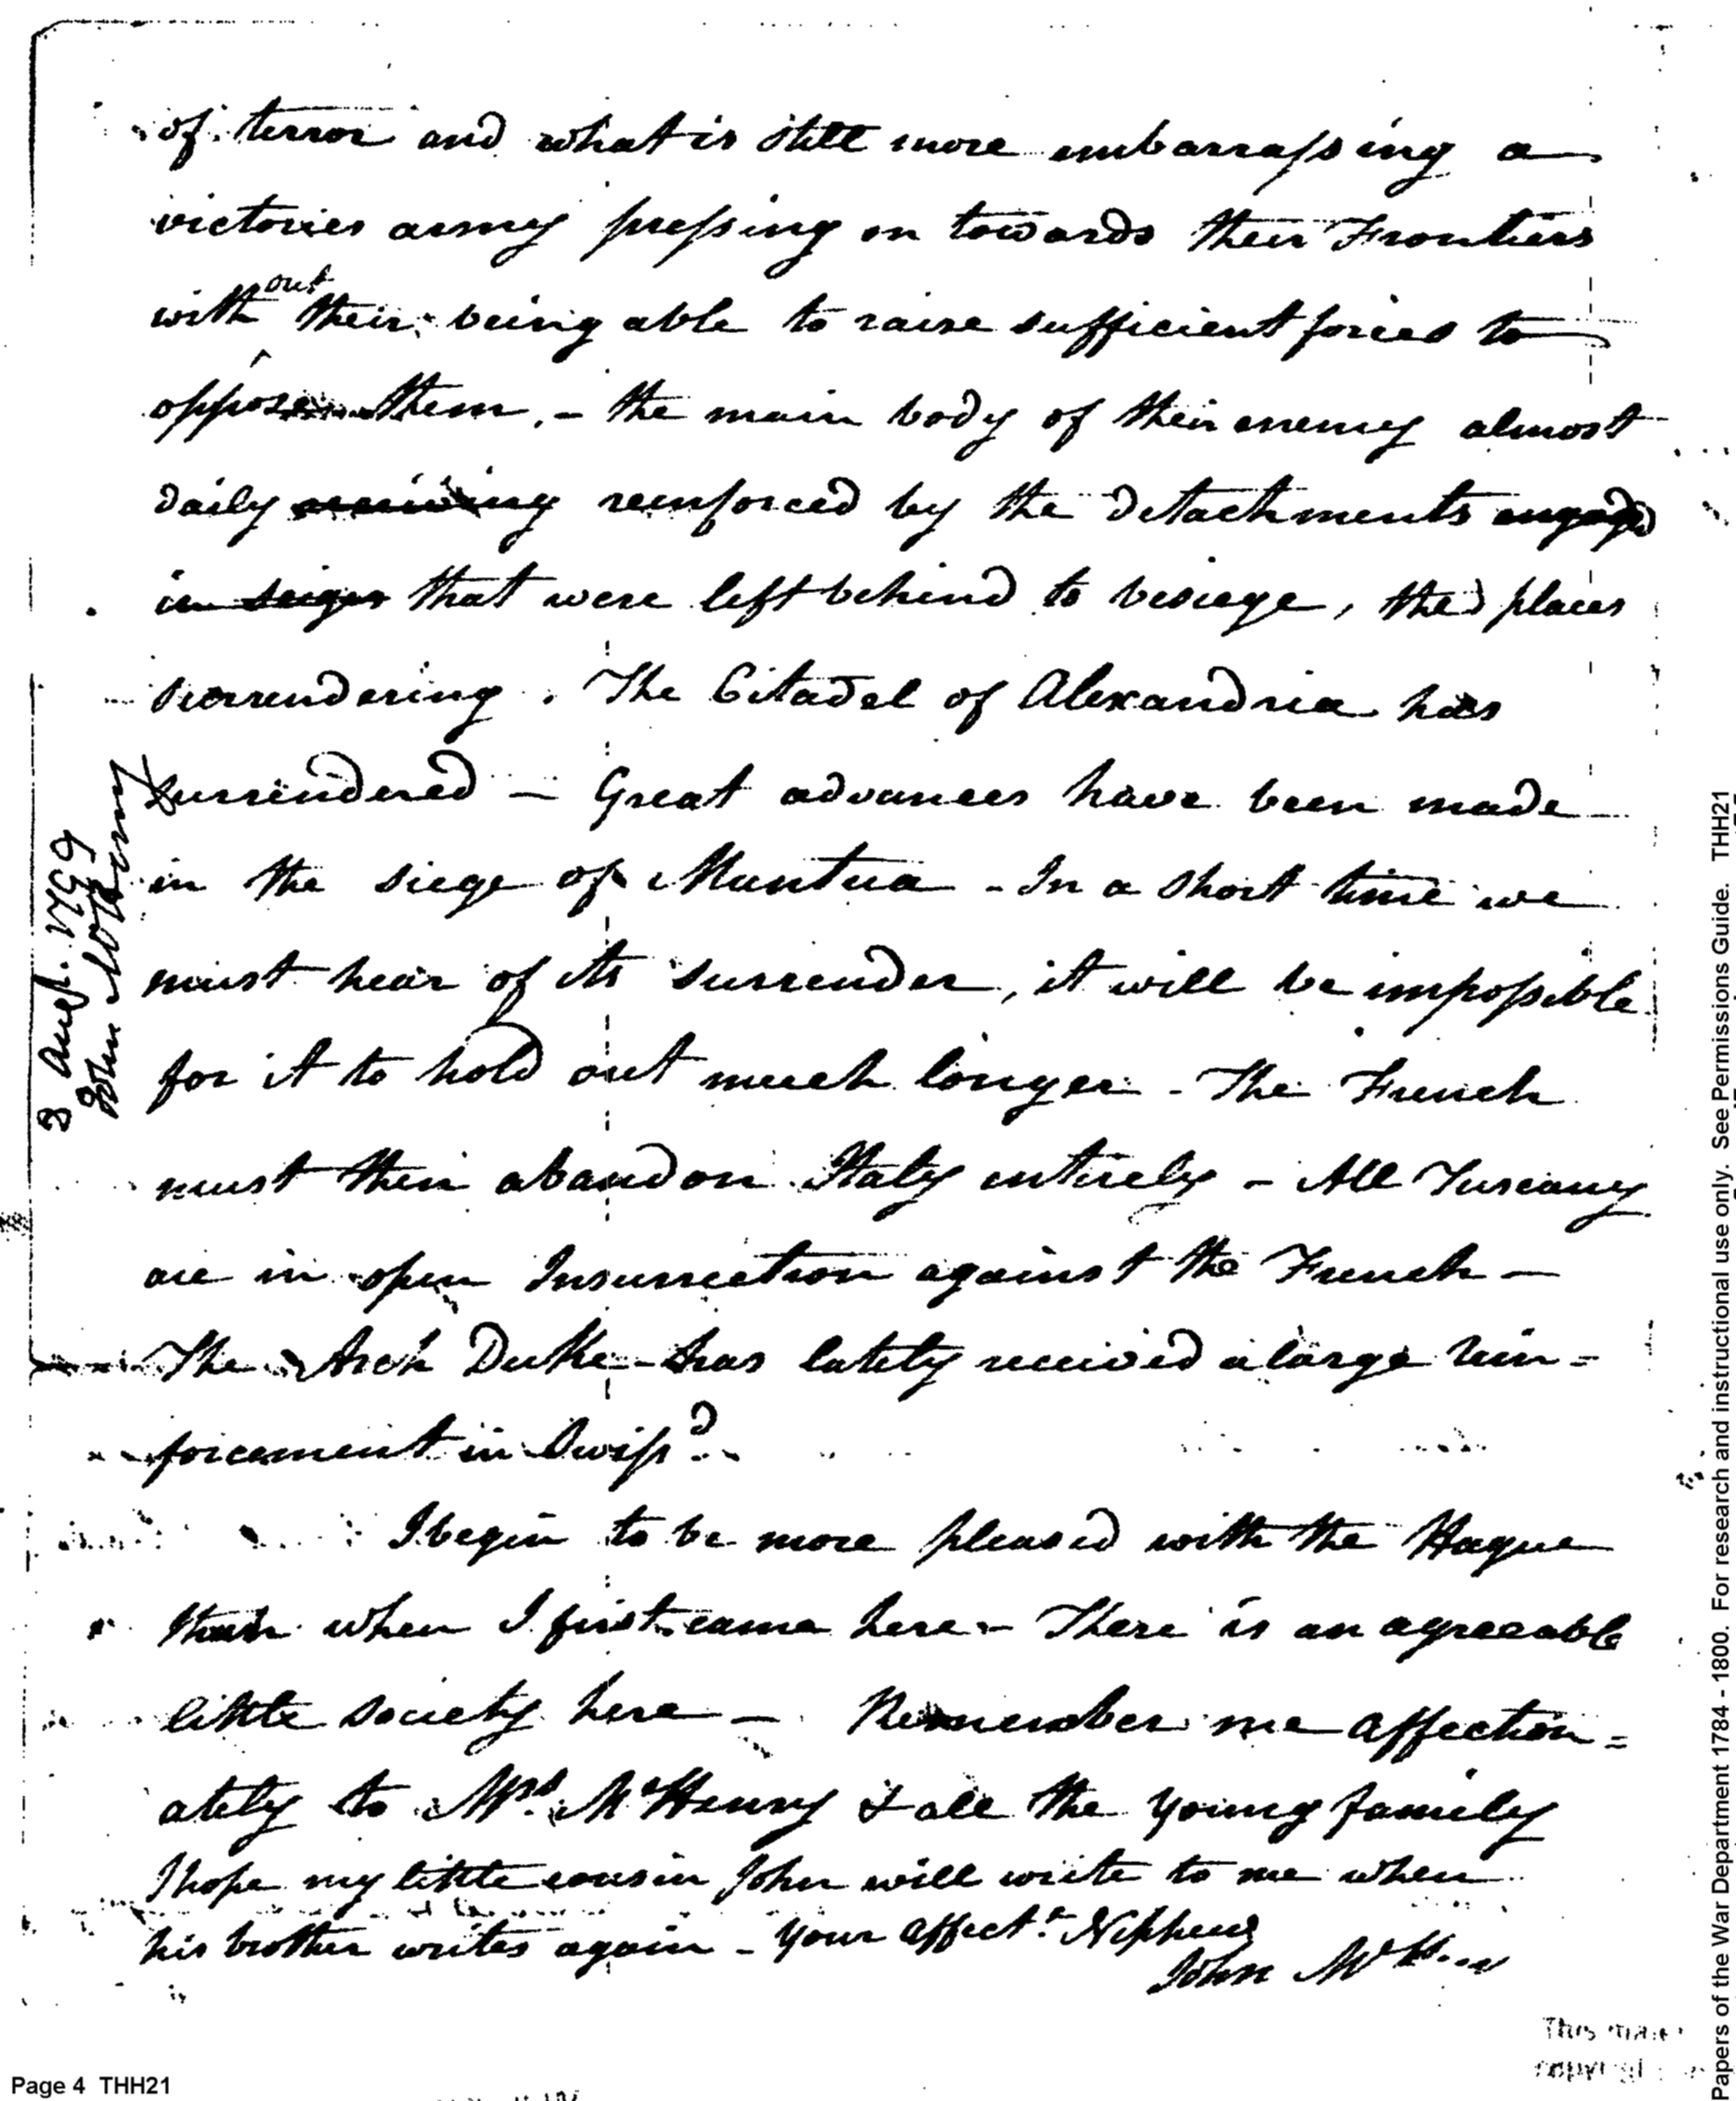 of terror and what is still more embarrassing a
victories army pressing on towards their Frontiers
without their being able to raise sufficient forces to
oppose them, - the main body of their enemy almost
daily receiving reinforced by the detachments engaged
in sieges that were left behind to besiege, the places
surrendering. The Citadel of Alexandria has
surrendered - Great advances have been made
in the siege of Mantua - In a short time we
must hear of its surrender, it will be impossible
for it to hold out much longer - The French
must then abandon Italy entirely - All Tuscany
are in open Insurrection against the French -
The Arch Duke has lately received a large rein=
forcement in Swissd.
I begin to be more pleased with the Hague
than when I first came here - There is an agreeable
little society here - Remember me affection=
ately to Mrs. McHenry & all the young family
I hope my little cousin John will write to me when
his brother writes again - Your affect. Nephew
John McHenry
3 Augt. 1799
John McHenry
Page 4 THH21
Papers of the War Department 1784 - 1800. For research and instructional use only. See Permissions Guide. THH21